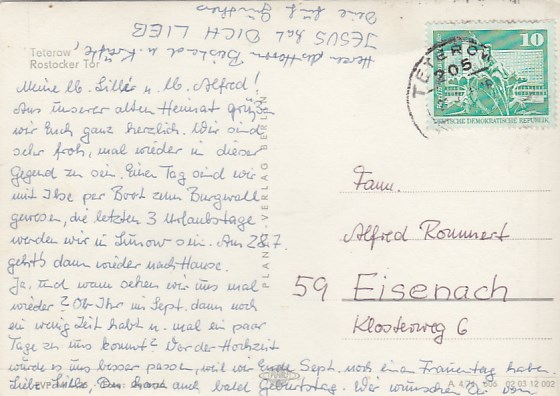 Teterow
Rostocker Tor
Meine lb. Lilli u. lb. Alfred!
Aus unserer alten Heimat grüßen
wir Euch ganz herzlich. Wir sind
sehr froh, mal wieder in dieser
Gegend zu sein. Einen Tag sind wir
mit Ilse per Boot zum Burgwall
gewesen, die letzten 3 Urlaubstage
werden wir in sein. Am 28.7.
geht's dann wieder nach Hause.
Ja, und wann sehen wir uns mal
wieder? Ob Ihr im Sept. dann noch
ein wenig Zeit habt u. mal ein paar
Tage zu uns kommt? Vor der Hochzeit
würde es uns besser passen, weil wir Ende Sept. noch einen Trauentag haben.
Liebe Lilli, Du hast auch bald Geburtstag. Wir wünschen Dir vom
Herzen des Herrn u. Kräfte,
JESUS hat DICH LIEB
PLANET-VERLAG BERLIN
TETEROW
205
10
DEUTSCHE DEMOKRATISCHE REPUBLIK
Fam.
Alfred Rommert
59 Eisenach
Klosterweg 6
EVP
02 03 12 002